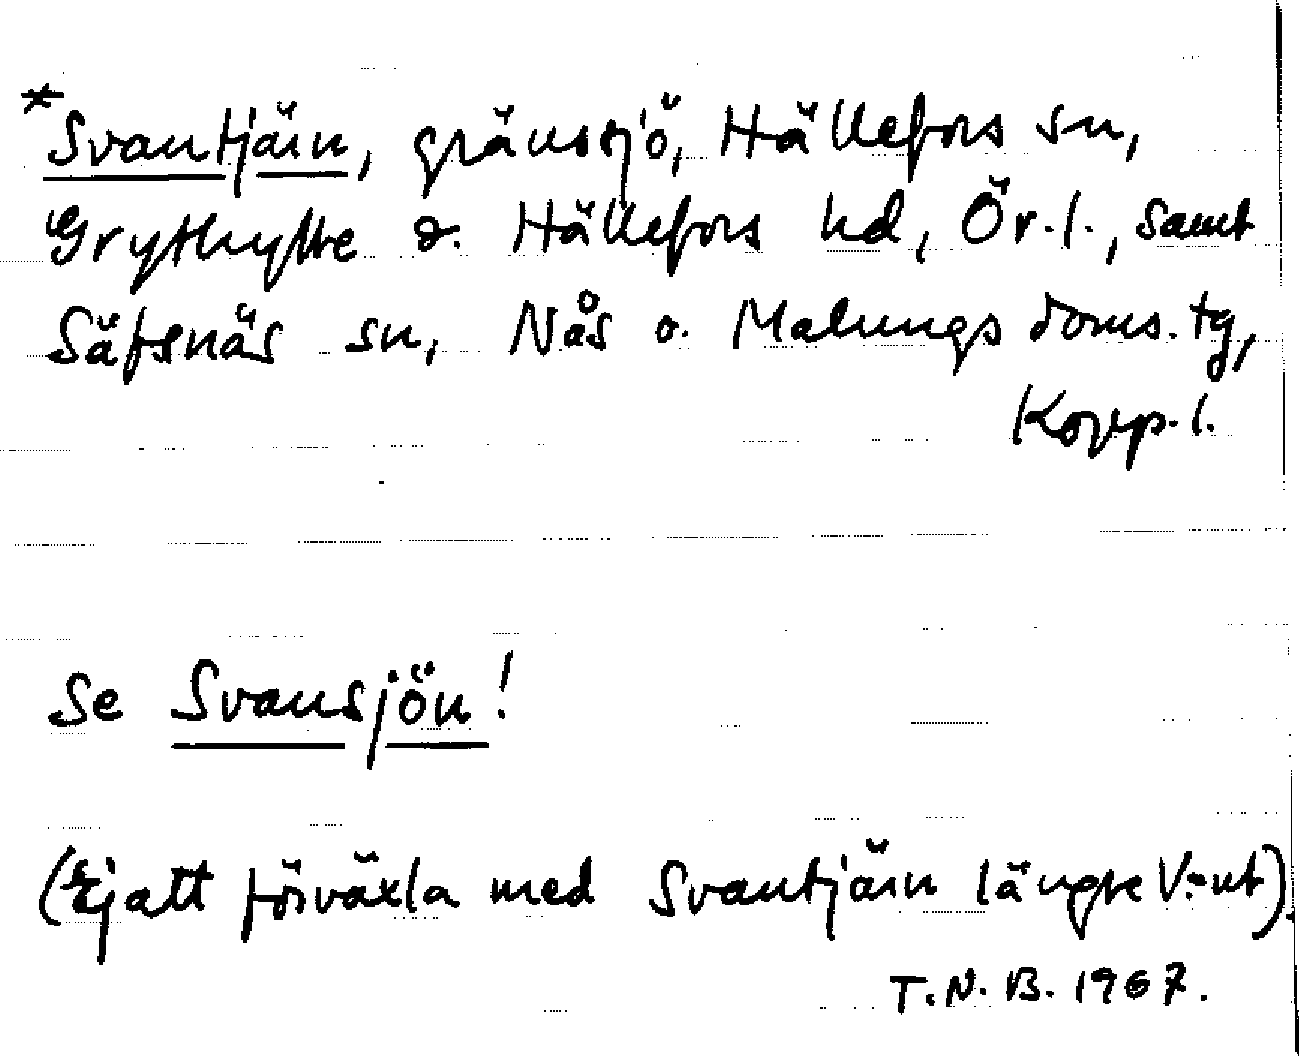 *Svantjärn, gränssjö, Hällefors sn,
Grythytte o. Hällefors hd, Ör.l., samt
Säfsnäs sn, Nås o. Malungs doms.tg,
Kopp.l.
Se Svansjön!
(Ej att förväxla med Svantjärn längre V.-ut).
T.N.B. 1967.